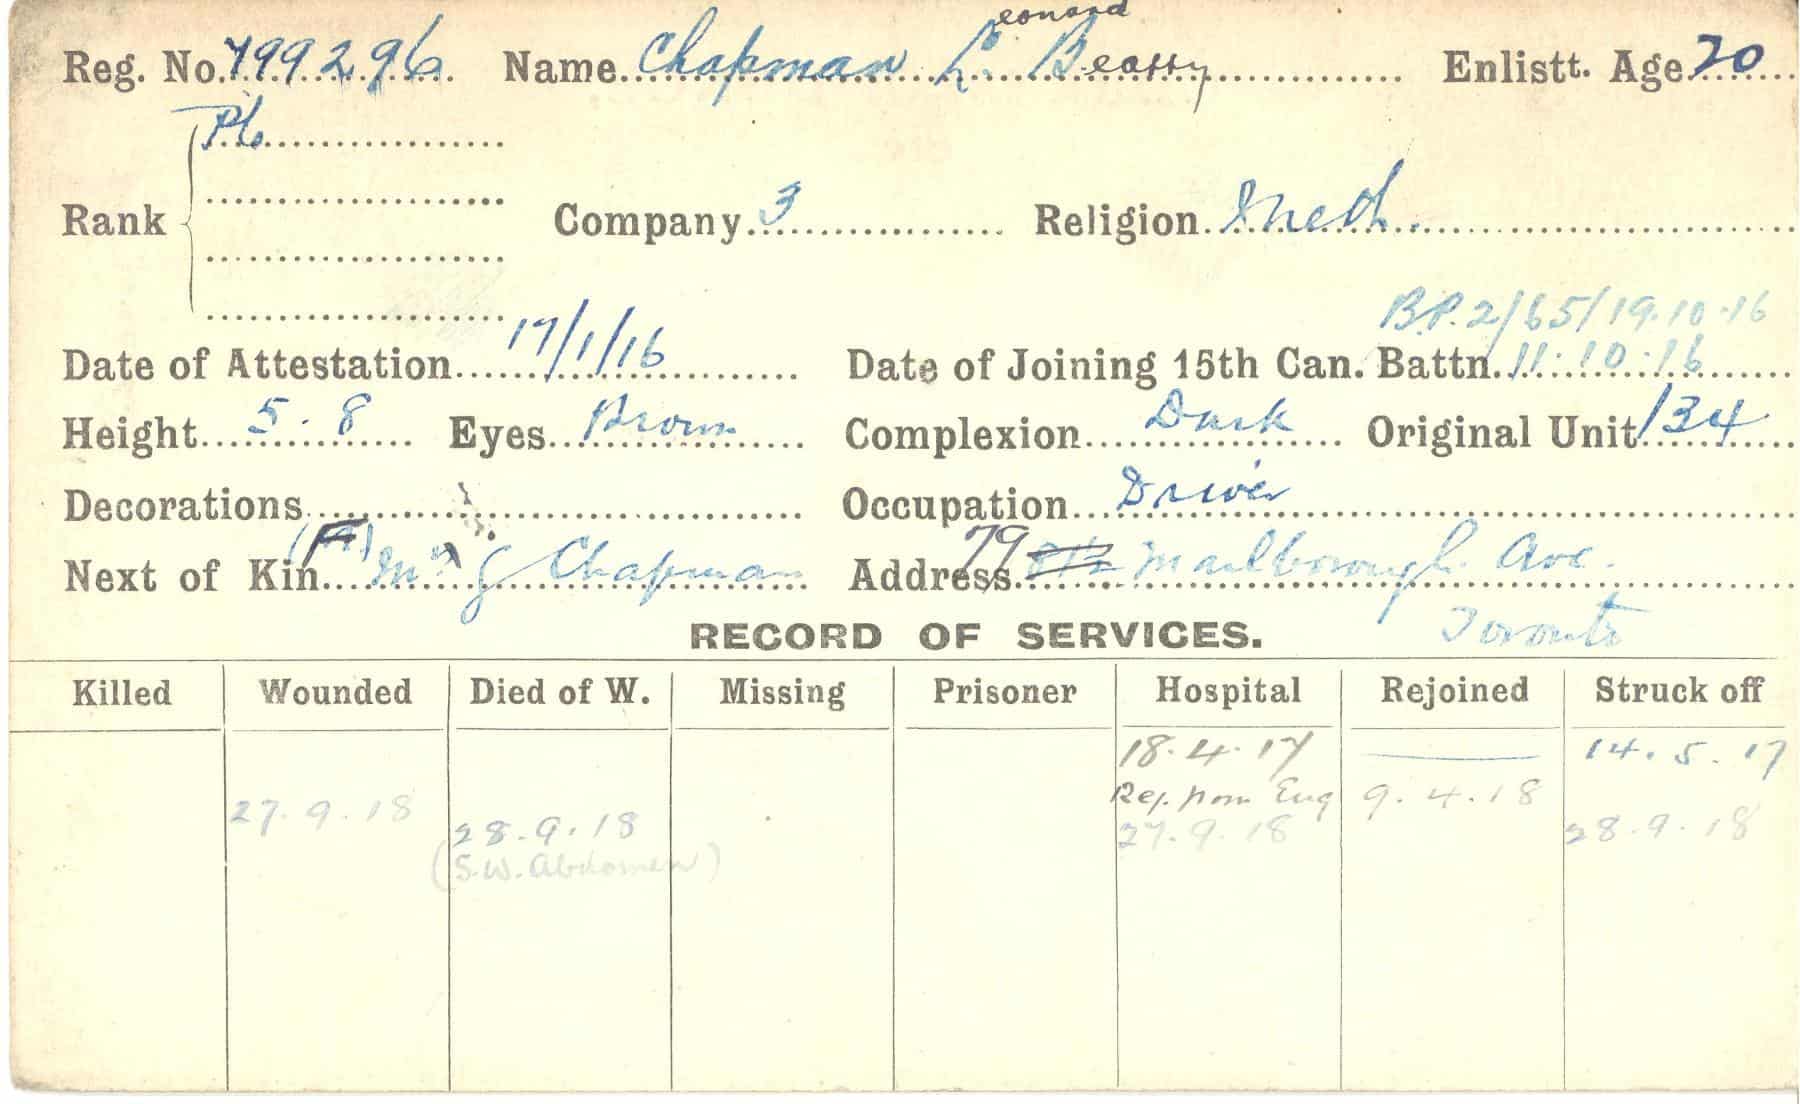 Reg. No. 799296 Name Chapman Leonard Beatty Enlistt. Age 20
Rank Pte
Company 3 Religion Meth.
B.P. 2/65/19.10.16
Date of Attestation 17/1/16 Date of Joining 15th Can. Battn. 11.10.16
Height 5.8 Eyes Brown Complexion Dark Original Unit 134
Decorations Occupation Driver
Next of Kin (F) Mr J Chapman Address 79 Marlborough Ave.
Toronto
RECORD OF SERVICES.
Killed Wounded Died of W. Missing Prisoner Hospital Rejoined Struck off
18.4.17 14.5.17
Rej. from Eng 9.4.18
27.9.18 28.9.18 27.9.18 28.9.18
(S.W. Abdomen)